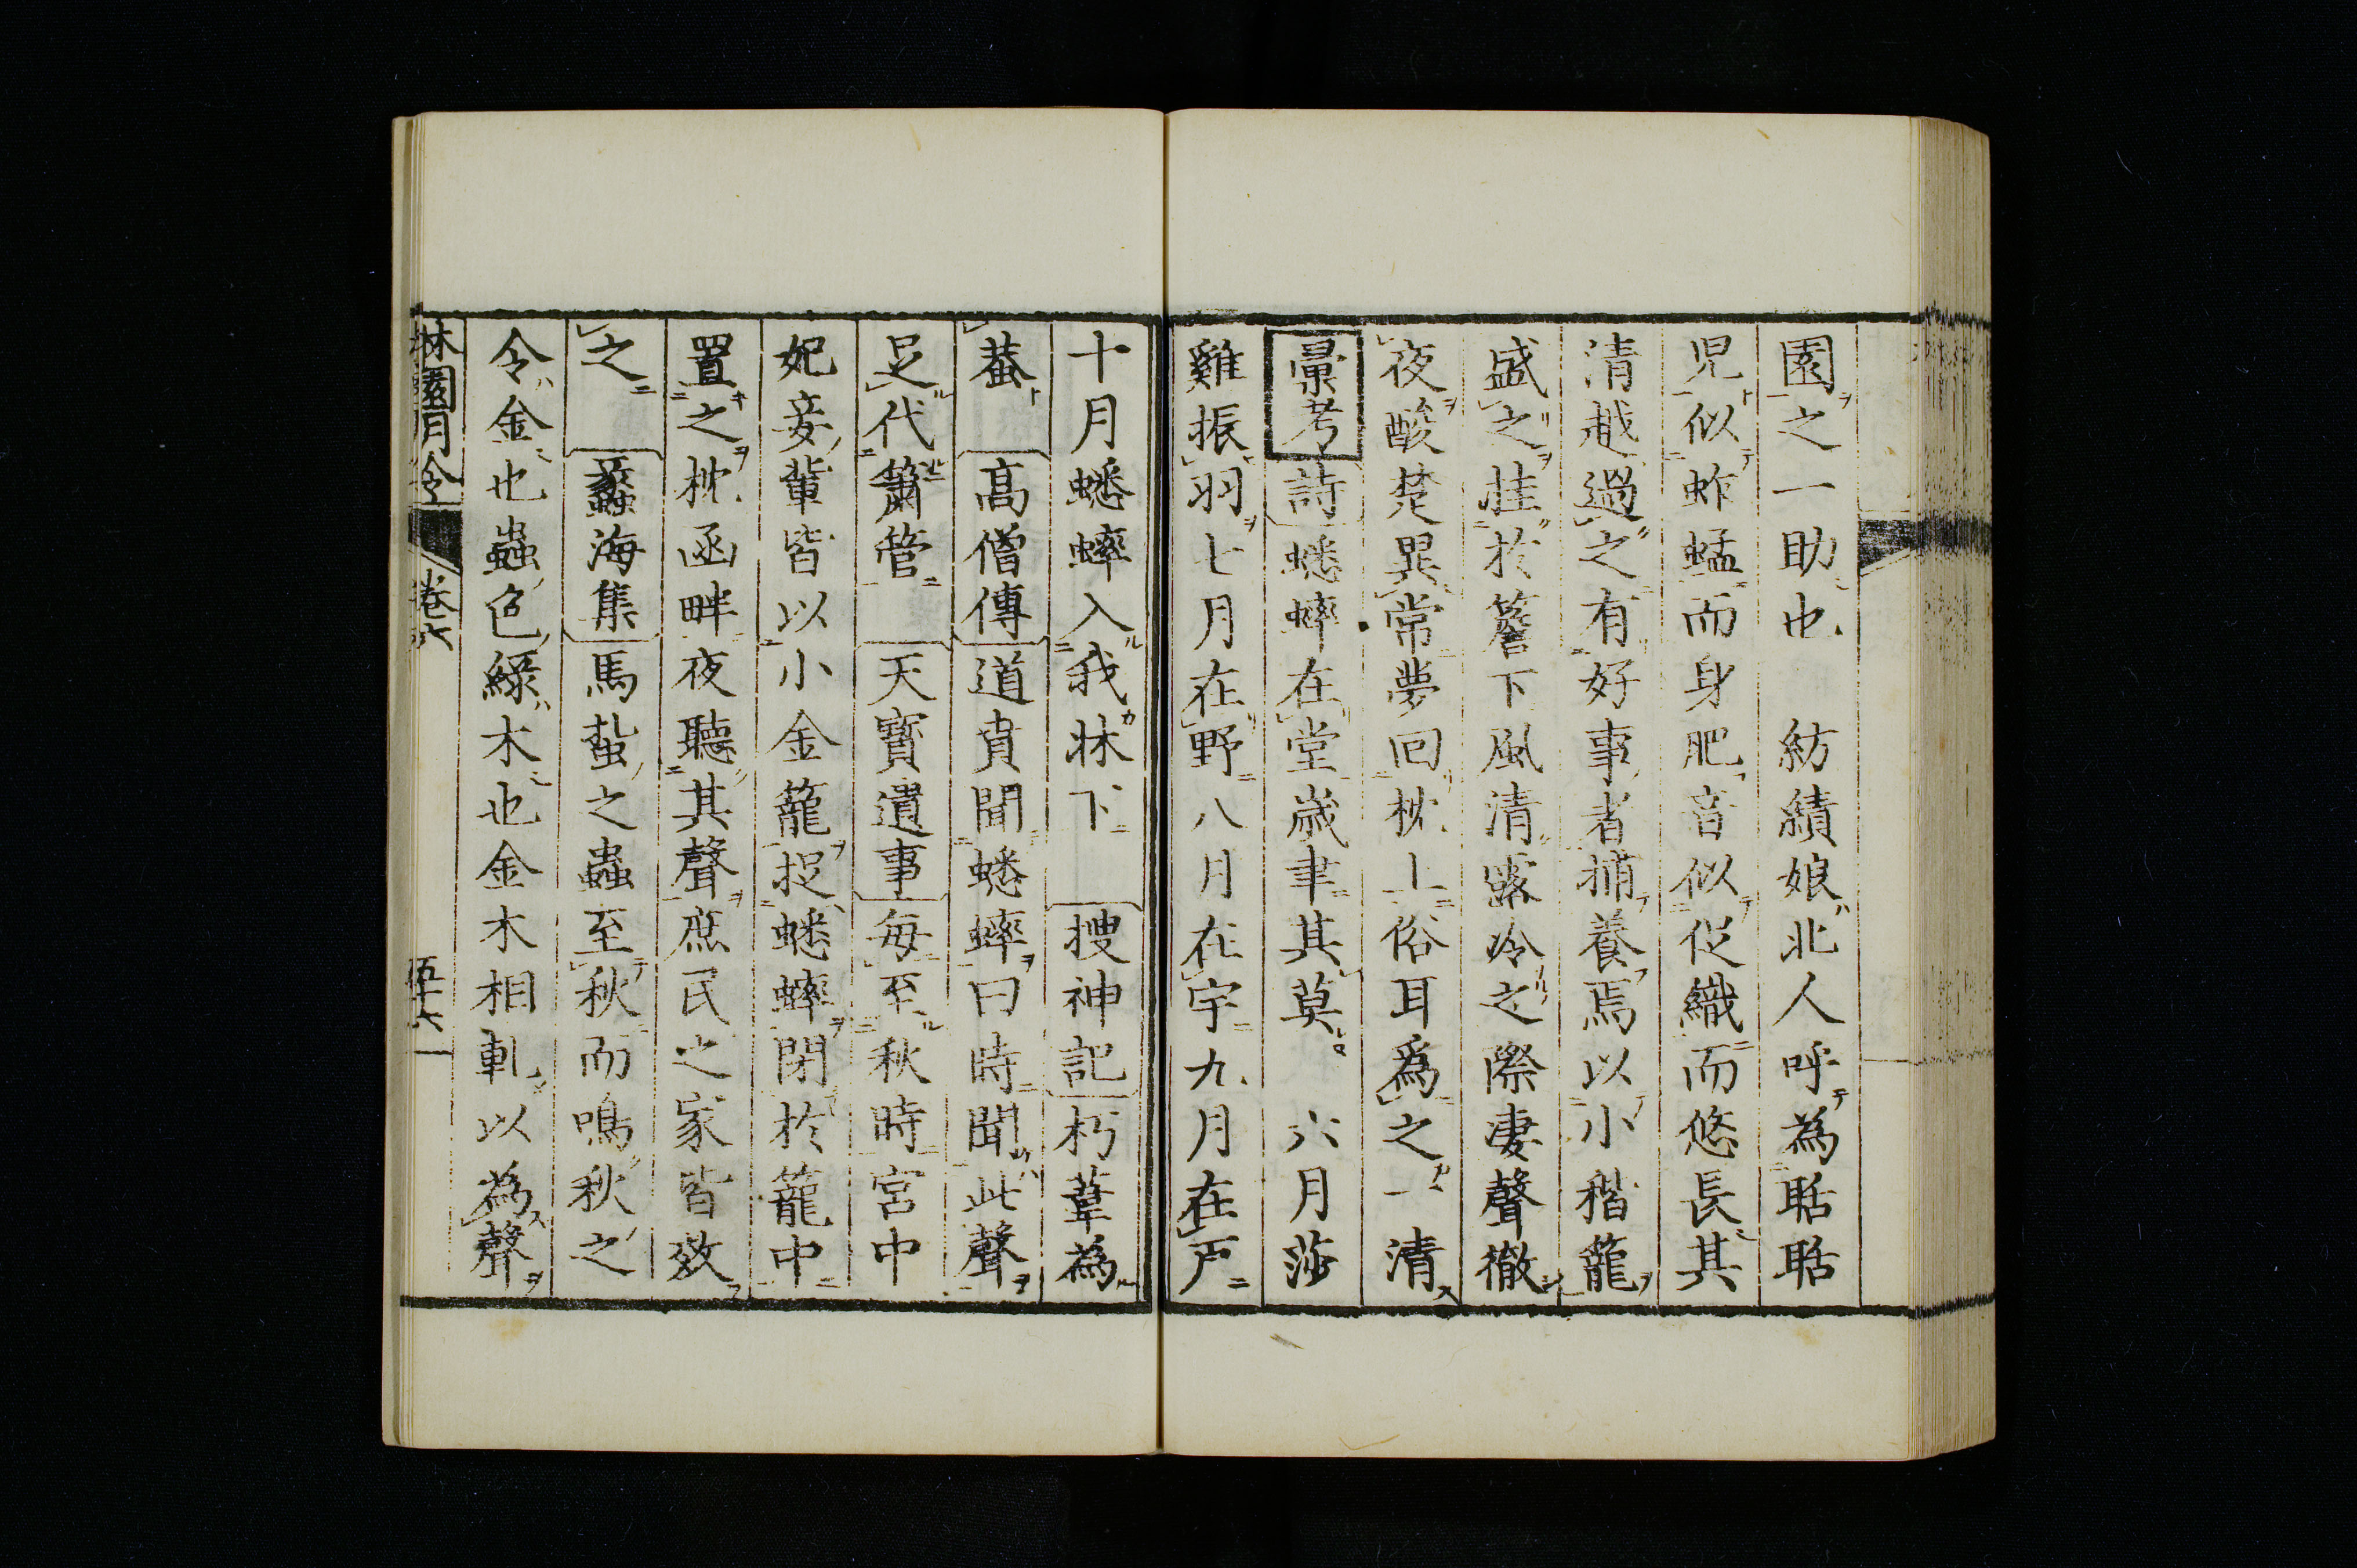 園之一助也　紡績娘北人呼為聒聒
児似蚱蜢而身肥音似促織而悠長其
清越過之有好事者捕養焉以小稭籠
盛之挂於簷下風清露冷之際凄聲徹
夜酸楚異常夢回枕上俗耳爲之一清
彙考詩蟋蟀在堂歲聿其莫　六月莎
雞振羽七月在野八月在宇九月在戶
十月蟋蟀入我牀下　搜神記朽葦為
蛬　高僧傳道賁聞蟋蟀曰時聞此聲
足代簫管　天寳遺事每至秋時宮中
妃妾輩皆以小金籠捉蟋蟀閉於籠中
置之枕函畔夜聽其聲庶民之家皆效
之　蠡海集馬蚻之蟲至秋而鳴秋之
令金也蟲色綠木也金木相軋以為聲
林園月令　卷七